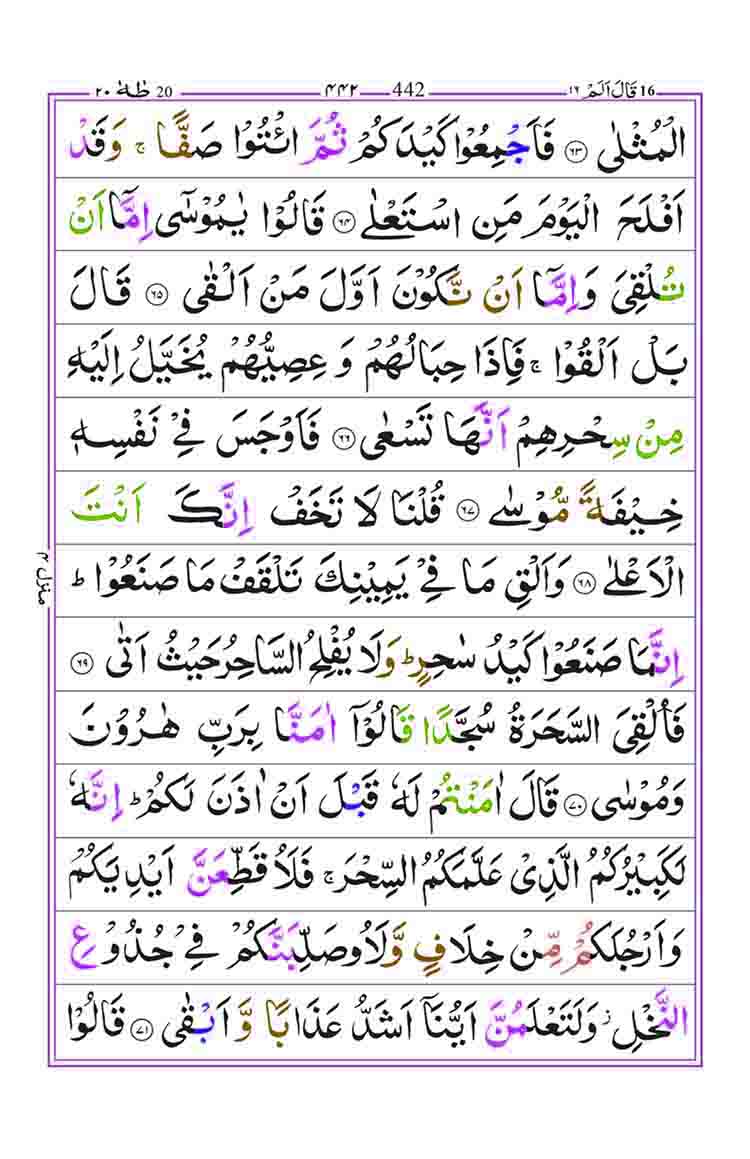 قَالَ اَلَمْ ١٦ 16 442 ٤٤٢ 20 طٰهٰ ٢٠
الْمُثْلٰى ﴿٦٣﴾ فَاَجْمِعُوْا كَيْدَكُمْ ثُمَّ ائْتُوْا صَفًّا ۚ وَقَدْ
اَفْلَحَ الْيَوْمَ مَنِ اسْتَعْلٰى ﴿٦٤﴾ قَالُوْا يٰمُوْسٰٓى اِمَّاۤ اَنْ
تُلْقِىَ وَاِمَّاۤ اَنْ نَّكُوْنَ اَوَّلَ مَنْ اَلْقٰى ﴿٦٥﴾ قَالَ
بَلْ اَلْقُوْا ۚ فَاِذَا حِبَالُهُمْ وَعِصِيُّهُمْ يُخَيَّلُ اِلَيْهِ
مِنْ سِحْرِهِمْ اَنَّهَا تَسْعٰى ﴿٦٦﴾ فَاَوْجَسَ فِىْ نَفْسِهٖ
خِيْفَةً مُّوْسٰى ﴿٦٧﴾ قُلْنَا لَا تَخَفْ اِنَّكَ اَنْتَ
الْاَعْلٰى ﴿٦٨﴾ وَاَلْقِ مَا فِىْ يَمِيْنِكَ تَلْقَفْ مَا صَنَعُوْا ؕ
اِنَّمَا صَنَعُوْا كَيْدُ سٰحِرٍ ؕ وَلَا يُفْلِحُ السَّاحِرُ حَيْثُ اَتٰى ﴿٦٩﴾
فَاُلْقِىَ السَّحَرَةُ سُجَّدًا قَالُوْۤا اٰمَنَّا بِرَبِّ هٰرُوْنَ
وَمُوْسٰى ﴿٧٠﴾ قَالَ اٰمَنْتُمْ لَهٗ قَبْلَ اَنْ اٰذَنَ لَكُمْ ؕ اِنَّهٗ
لَكَبِيْرُكُمُ الَّذِىْ عَلَّمَكُمُ السِّحْرَ ۚ فَلَاُقَطِّعَنَّ اَيْدِيَكُمْ
وَاَرْجُلَكُمْ مِّنْ خِلَافٍ وَّلَاُوصَلِّبَنَّكُمْ فِىْ جُذُوْعِ
النَّخْلِ ۫ وَلَتَعْلَمُنَّ اَيُّنَاۤ اَشَدُّ عَذَابًا وَّاَبْقٰى ﴿٧١﴾ قَالُوْا
منزل ٤